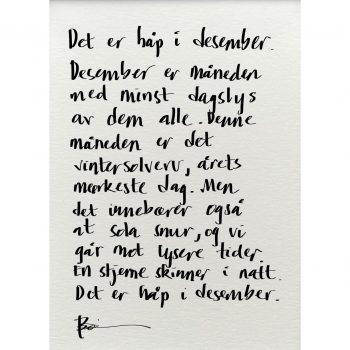 Det er håp i desember.
Desember er måneden
med minst dagslys
av dem alle. Denne
måneden er det
vintersolverv, årets
mørkeste dag. Men
det innebærer også
at sola snur, og vi
går mot lysere tider.
En stjerne skinner i natt.
Det er håp i desember.